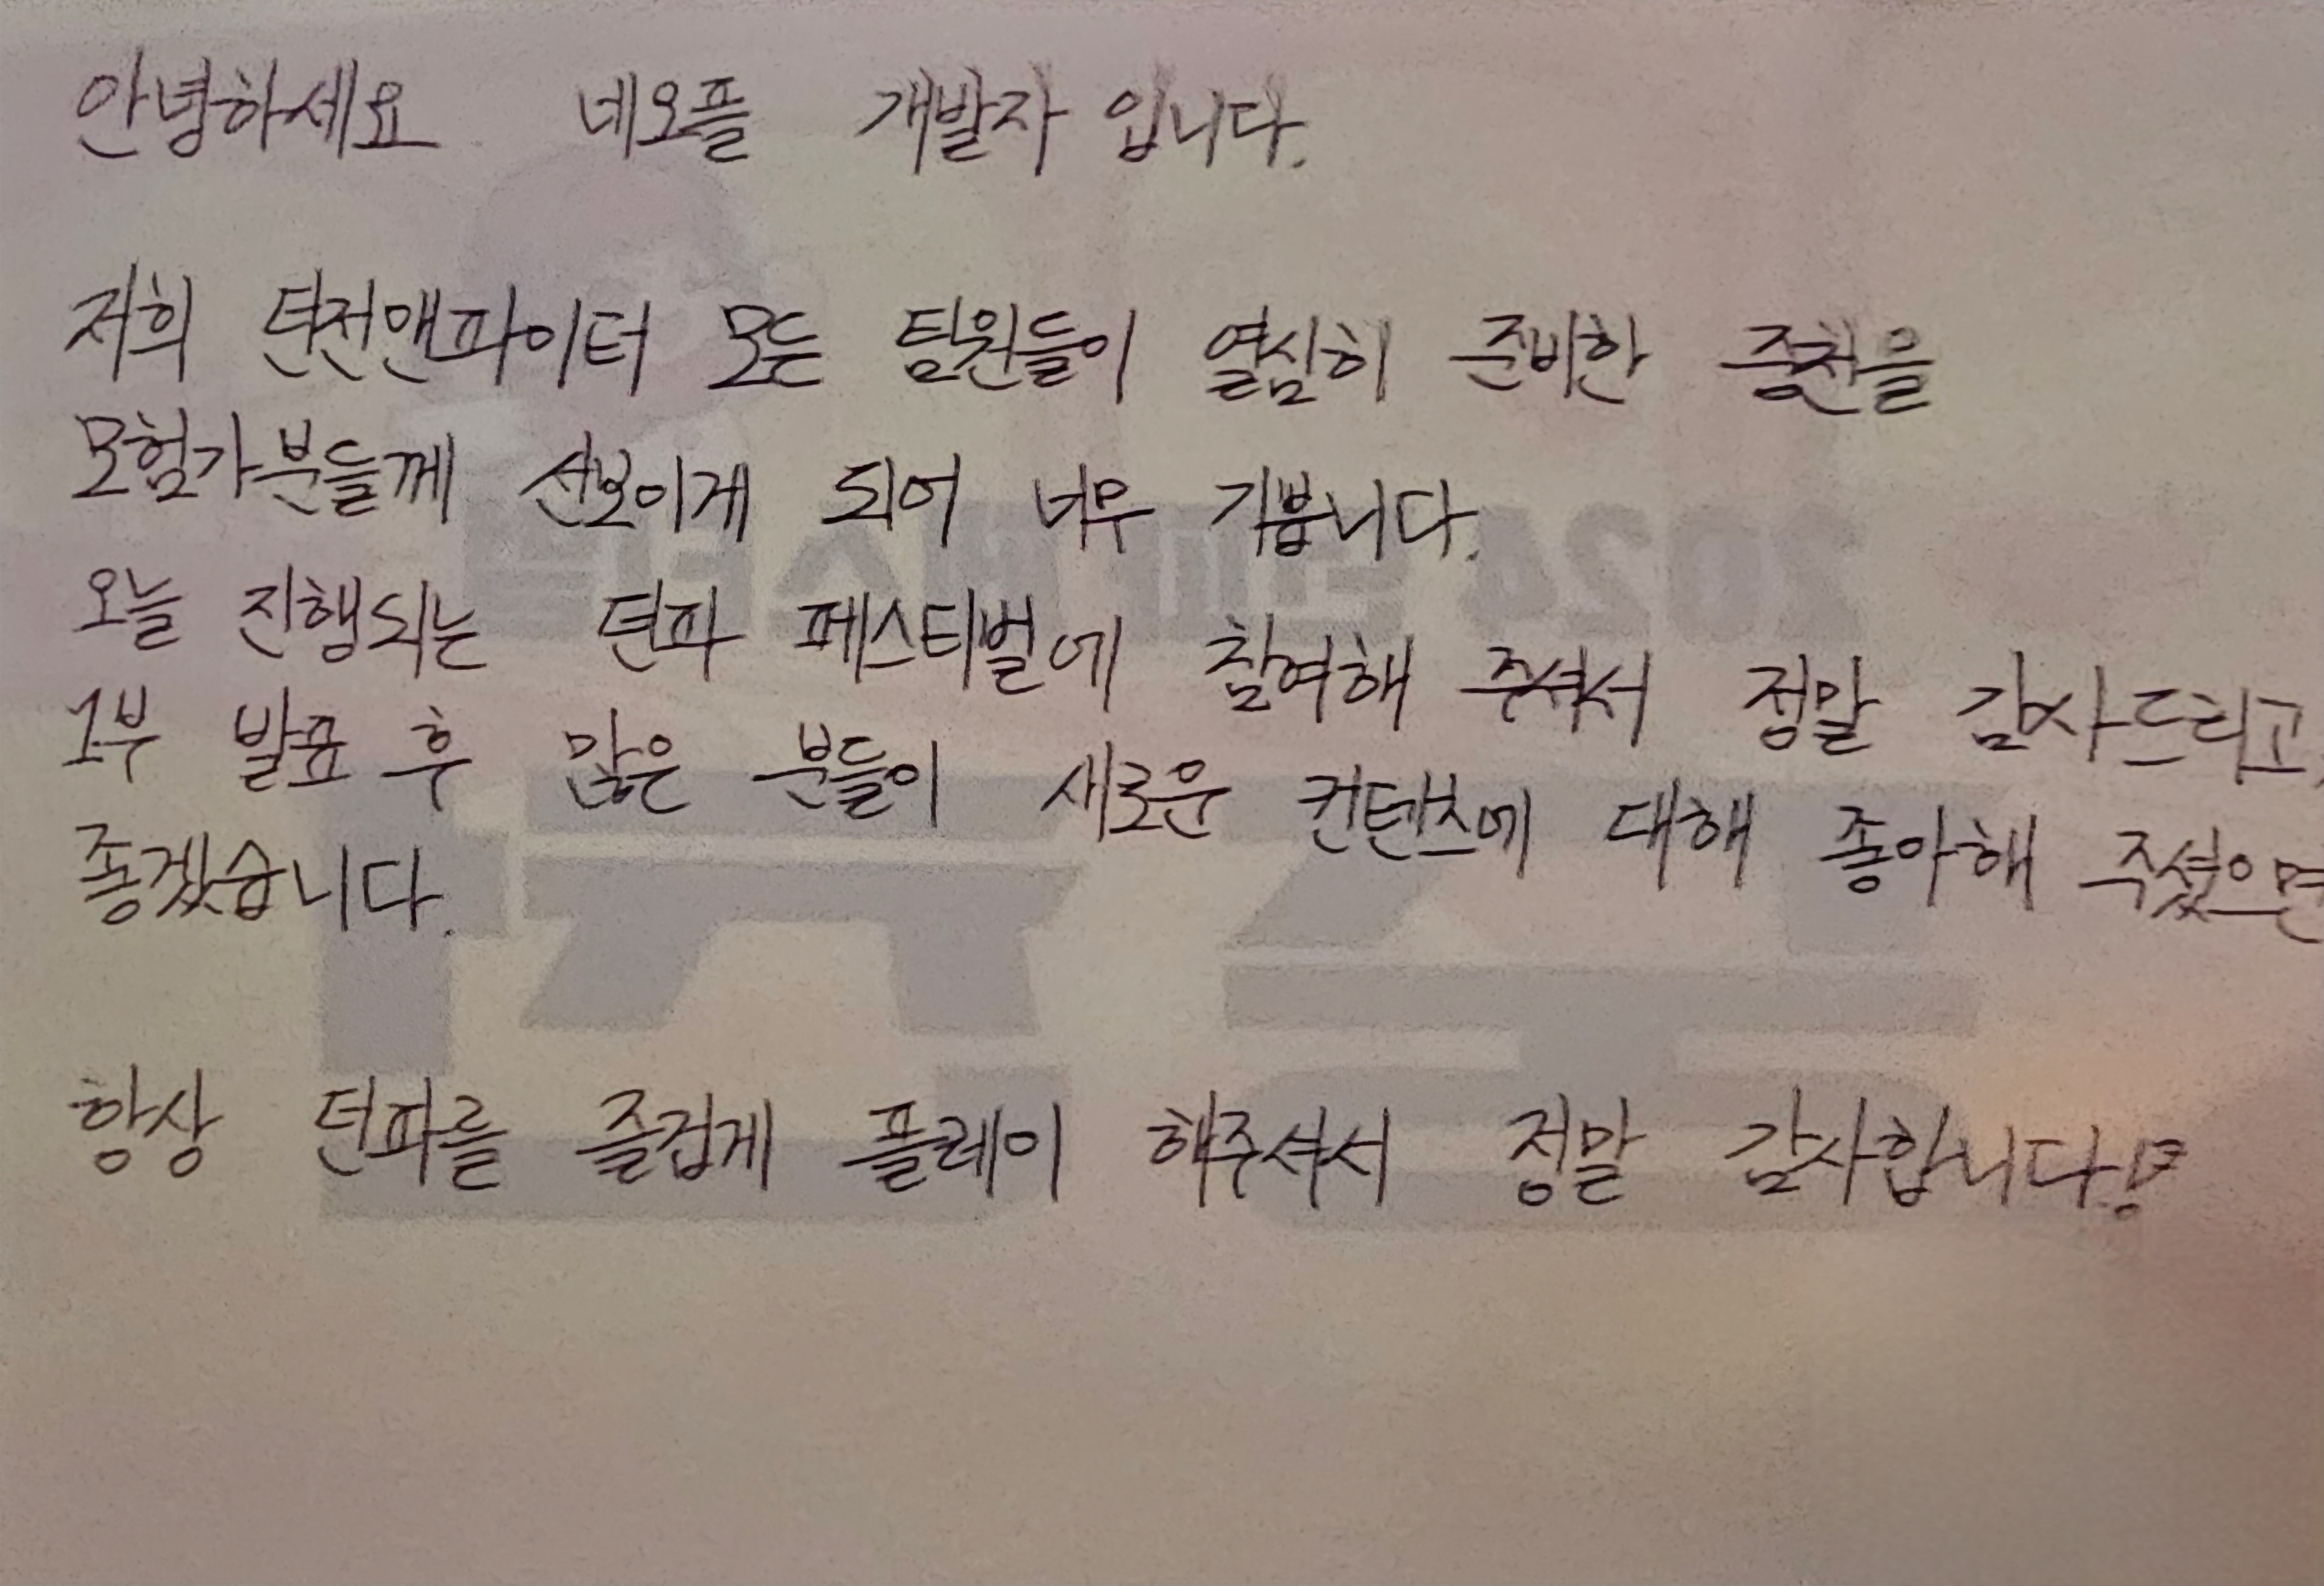 안녕하세요 네오플 개발자 입니다.
저희 던전앤파이터 모든 팀원들이 열심히 준비한 중천을
모험가분들께 선보이게 되어 너무 기쁩니다.
오늘 진행되는 던파 페스티벌에 참여해 주셔서 정말 감사드리고,
1부 발표 후 많은 분들이 새로운 컨텐츠에 대해 좋아해 주셨으면
좋겠습니다.
항상 던파를 즐겁게 플레이 해주셔서 정말 감사합니다!
2024 던파 페스티벌
중천